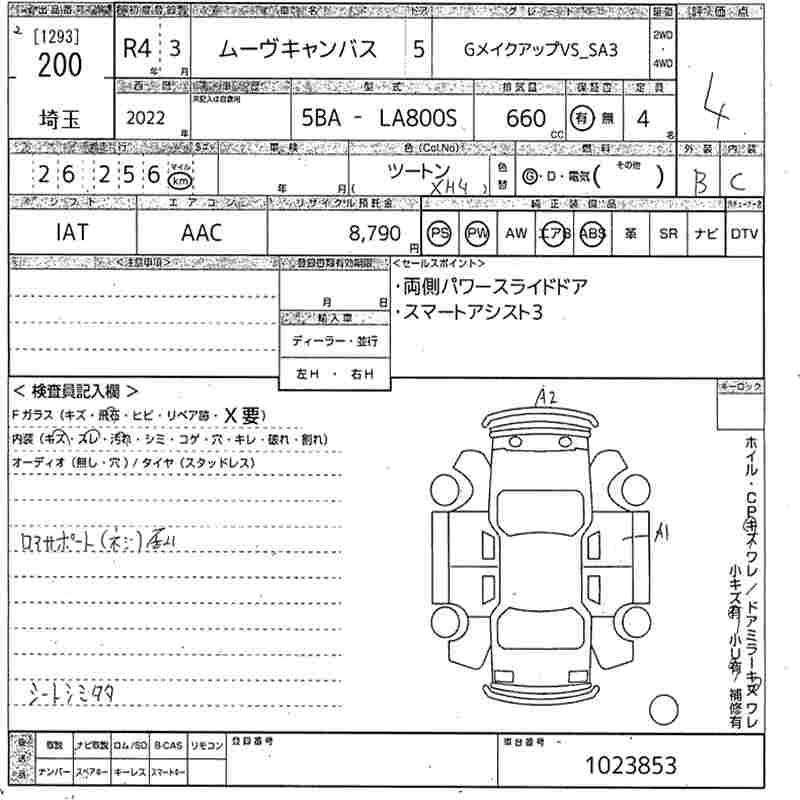 初度登録
車名
ドア
グレード
評価点
[1293]
200
R4 年 3 月
ムーヴキャンバス
5
GメイクアップVS_SA3
2WD
・
4WD
4
埼玉
西暦
型式
排気量
保証書
定員
2022 年
5BA - LA800S
660 CC
有 無
4 名
走行
車検
色(Col.No)
燃料
外装
内装
26,256
マイル
km
年 月(
ツートン
XH4 )
色替
G・D・電気( その他 )
B
C
シフト
エアコン
リサイクル預託金
純正装備品
IAT
AAC
8,790 円
PS
PW
AW
エアB
ABS
革
SR
ナビ
DTV
<注意事項>
登録書類有効期限
月 日
輸入車
ディーラー・並行
左H ・ 右H
<セールスポイント>
・両側パワースライドドア
・スマートアシスト3
< 検査員記入欄 >
Fガラス(キズ・飛石・ヒビ・リペア跡・X要)
内装(キズ・スレ・汚れ・シミ・コゲ・穴・キレ・破れ・割れ)
オーディオ(無し・穴)/タイヤ(スタッドレス)
シートシミタタ
A2
A1
キーロック
ホイル・CPキズワレ/ドアミラーキズワレ
小キズ有/小U有/補修有
取説
ナビ取説
ロム/SD
B-CAS
リモコン
ナンバー
スペアキー
キーレス
スマートキー
登録番号
車台番号
1023853